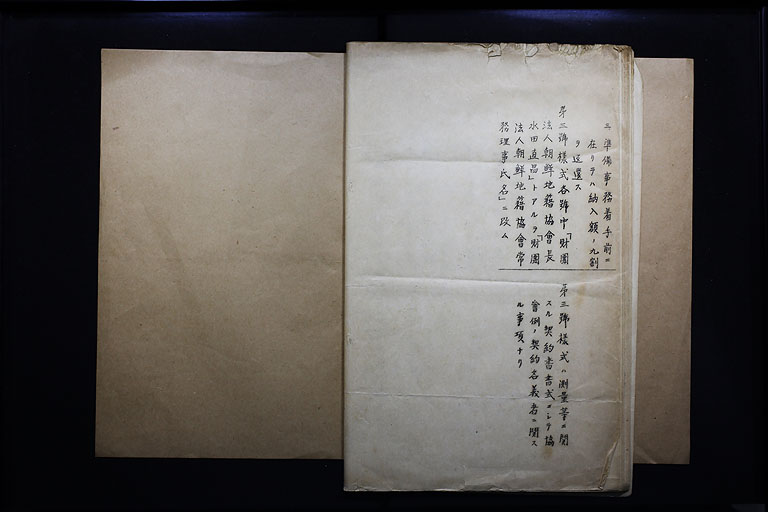 三準備事務着手前ニ
在リテハ納入額ノ九割
ヲ返還ス
第三號樣式各號中「財團
法人朝鮮地籍協會長
水田直昌」トアルヲ「財團
法人朝鮮地籍協會常
務理事氏名」ニ改ム
第三號樣式ハ測量等ニ関
スル契約書書式ニシテ協
會側ノ契約名義者ニ関ス
ル事項ナリ